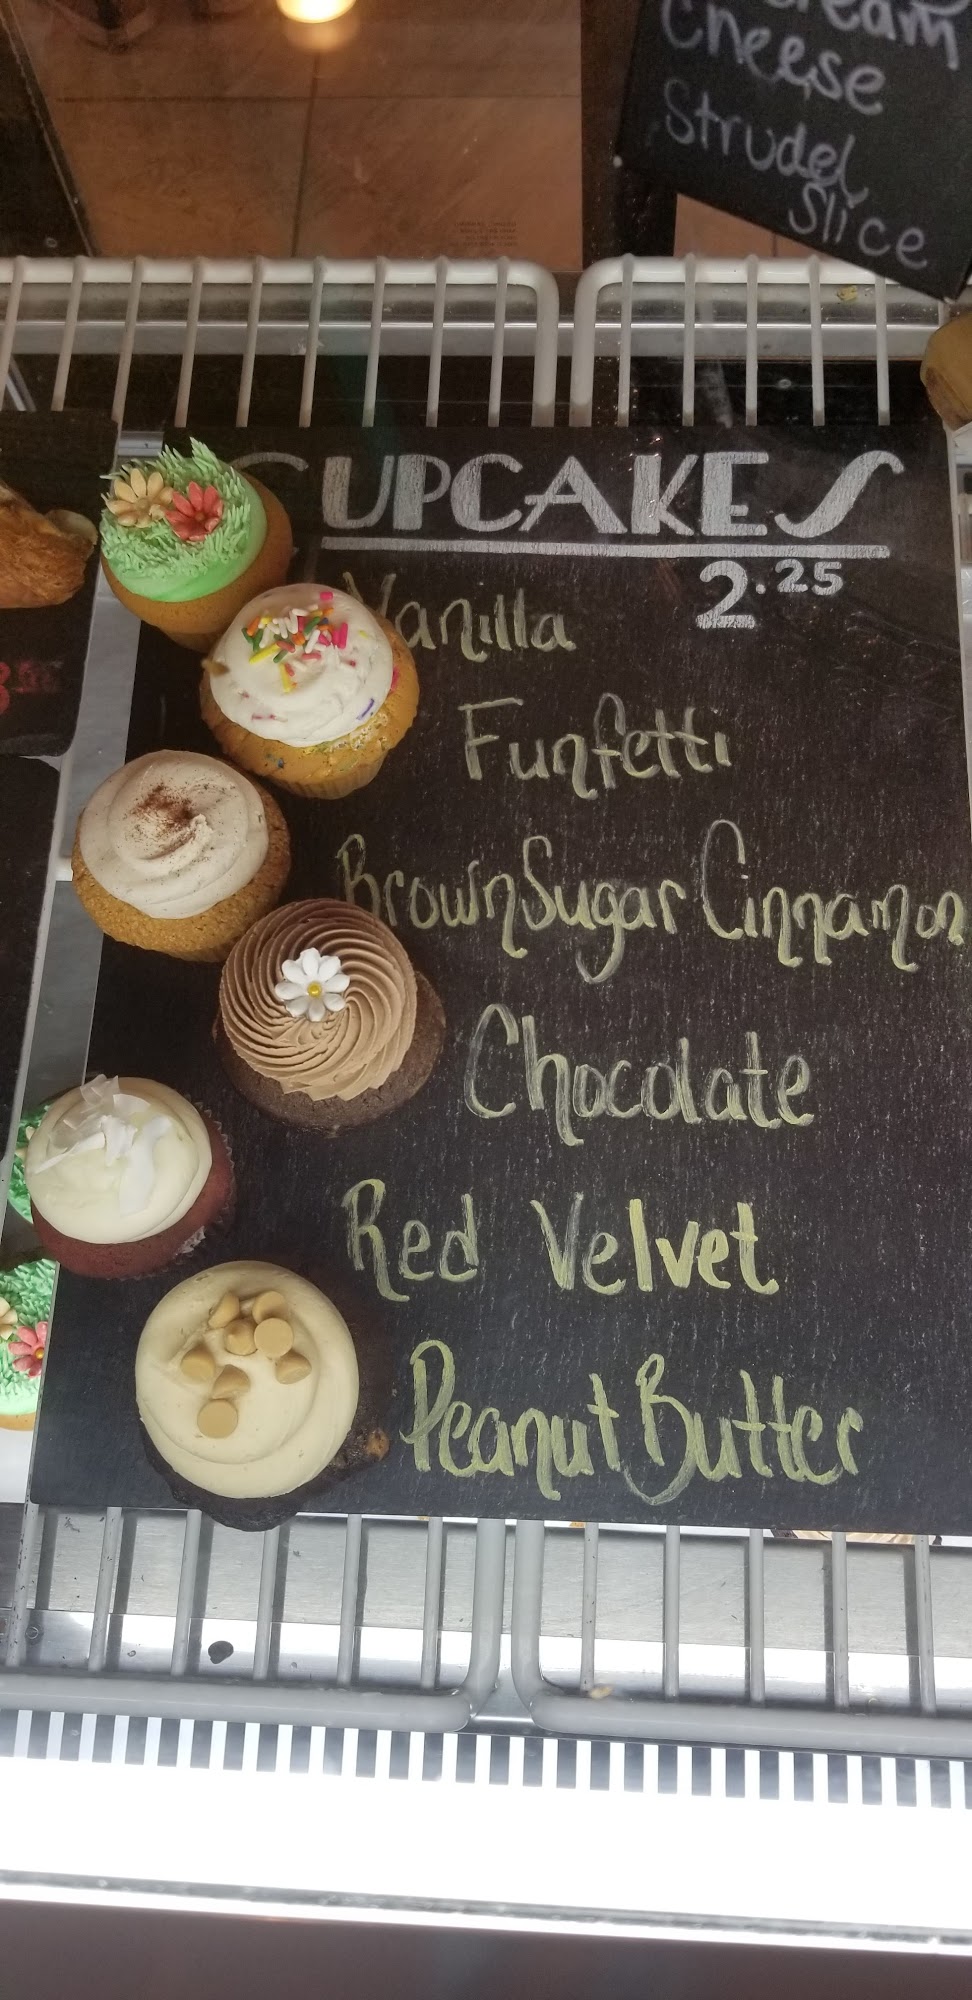 Cream
Cheese
Strudel
Slice
CUPCAKES
2.25
Vanilla
Funfetti
Brown Sugar Cinnamon
Chocolate
Red Velvet
Peanut Butter